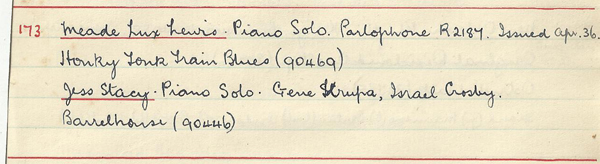 173 Meade Lux Lewis. Piano Solo. Parlophone R2187. Issued Apr. 36.
Honky Tonk Train Blues (90469)
Jess Stacy. Piano Solo. Gene Krupa, Israel Crosby.
Barrelhouse (90446)